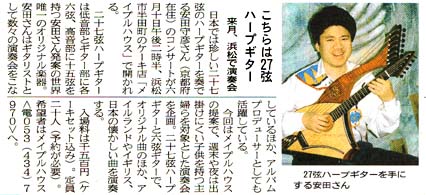 こちらは27弦
ハープギター
来月、浜松で演奏会
日本では珍しい二十七
弦のハープギターを奏で
る安田守彦さん(京都府
在住)のコンサートが六
月十日午後二時、浜松
市半田町のケーキ店「メ
イプルハウス」で開かれ
る。
二十七弦ハープギター
は低音部とギター部に各
六弦、高音部に十五弦を
持つ安田さん発案の世界
唯一のオリジナル楽器。
安田さんはギタリストと
して数々の演奏会をこな
しているほか、アルバム
プロデューサーとしても
活躍している。
今回はメイプルハウス
の提案で、週末や夜は出
掛けにくい子供を持つ主
婦らを対象とした演奏会
を企画。二十七弦ハープ
ギターと六弦ギターで、
オリジナル曲のほか、ア
イルランドやイギリス、
日本の懐かしい曲を演奏
する。
入場料は千五百円(ケ
ーキセット込み)。定員
二十人(予約が必要)。
希望者はメイプルハウス
<電053(434)7
970>へ。
27弦ハープギターを手に
する安田さん